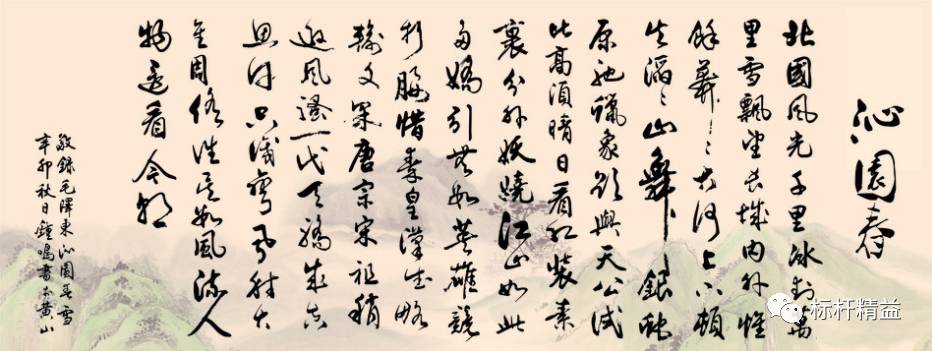 沁園春
北國風光千里冰封萬
里雪飄望長城內外惟
餘莽〻大河上下頓
失滔〻山舞銀蛇
原馳蠟象欲與天公試
比高須晴日看紅裝素
裹分外妖嬈江山如此
多嬌引無數英雄競
折腰惜秦皇漢武略
輸文采唐宗宋祖稍
遜風騷一代天驕成吉
思汗只識彎弓射大
雕俱往矣數風流人
物還看今朝
敬錄毛澤東沁園春雪
辛卯秋日鍾鳴書於黃山
标杆精益